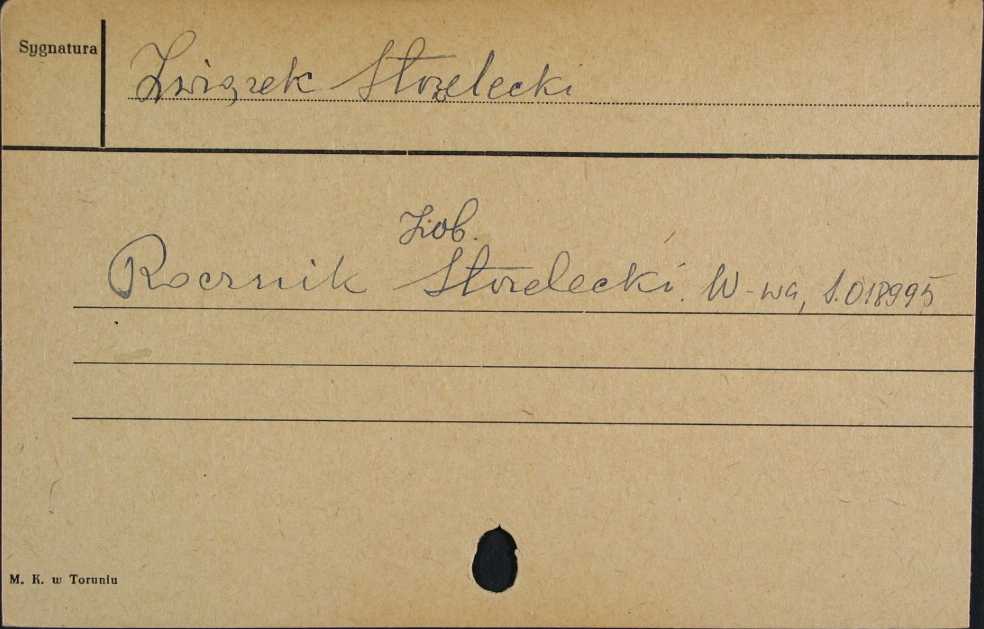 Sygnatura
Związek Strzelecki
Zob.
Rocznik Strzelecki. W-wa, S.018995
M. K. w Toruniu